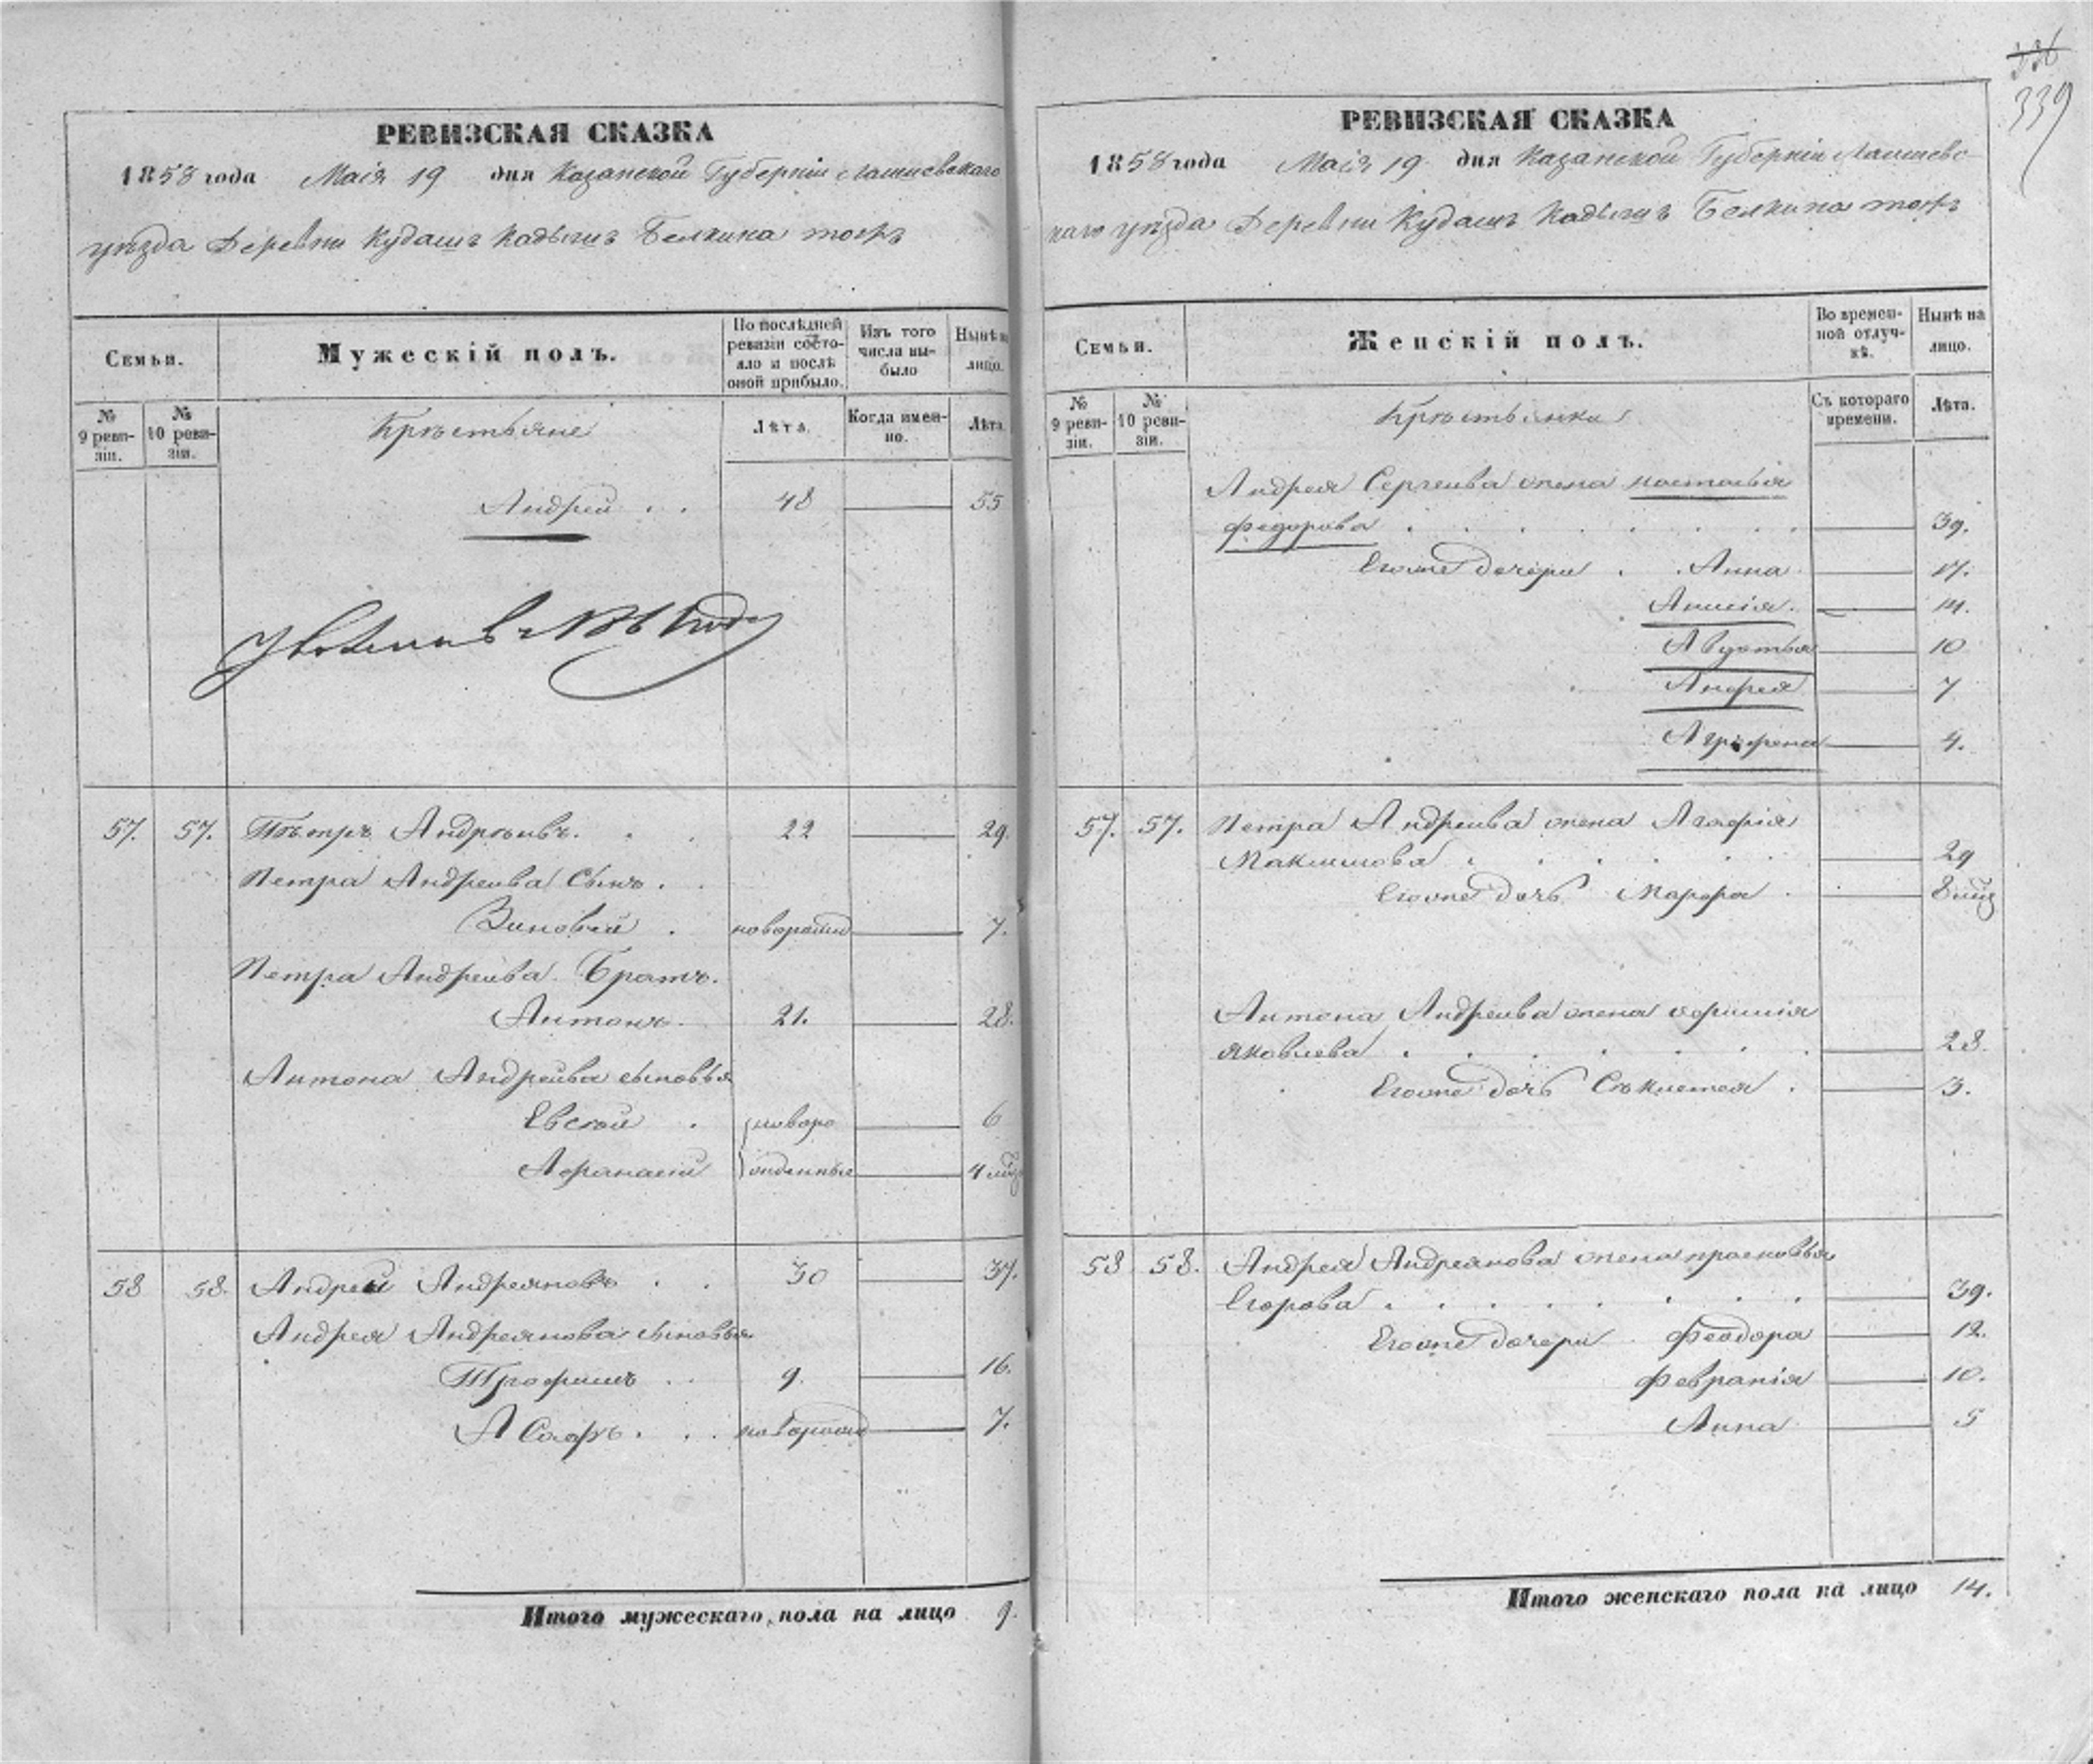 336
339
РЕВИЗСКАЯ СКАЗКА
1858 года Маія 19 дня Казанской Губерніи Лаишевскаго
уѣзда Деревни Кудашъ Кадышъ Белкина тожъ
Семьи.
Мужескій полъ.
По послѣдней ревизіи состояло и послѣ оной прибыло.
Изъ того числа выбыло
Нынѣ на лицо.
№ 9 ревизіи.
№ 10 ревизіи.
Крѣстьяне
Лѣта.
Когда именно.
Лѣта.
Андрей . . 48 55
57. 57. Пѣтръ Андрѣевъ. . . 22 29.
Петра Андреева Сынъ . .
Зиновей . новорожд 7.
Петра Андреева Братъ.
Антонъ. 21. 28.
Антона Андреева сыновья
Евсей . новоро 6
Афанасей жденныя 4 мѣс
58 58. Андрей Андреяновъ . . 30 37.
Андрея Андреянова сыновья
Трофимъ . . 9. 16.
новорожд 7.
Итого мужескаго пола на лицо 9.
РЕВИЗСКАЯ СКАЗКА
1858 года Маія 19 дня Казанской Губерніи Лаишевс
каго уѣзда Деревни Кудашъ Кадышъ Белкина тожъ
Семьи.
Женскій полъ.
Во временной отлучкѣ.
Нынѣ на лицо.
№ 9 ревизіи.
№ 10 ревизіи.
Крѣстьянки
Съ котораго времени.
Лѣта.
Андрея Сергеева жена настасья
федорова . . . . . . . 39.
Егоже дочери . . Анна 17.
Анисія. 14.
Авдотья 10
7
Аграфена 4.
57. 57. Петра Андреева жена Агафія
Максимова . . . . . . 29
Егоже дочь Марфа . 8 мѣс
Антона Андреева жена
яковлева . . . . . . 28.
Егоже дочь . 3.
58 58. Андрея Андреянова жена прасковья
Егорова . . . . . . . 39.
Егоже дочери Феодора 12.
Февранія 10.
Анна 5
Итого женскаго пола на лицо 14.